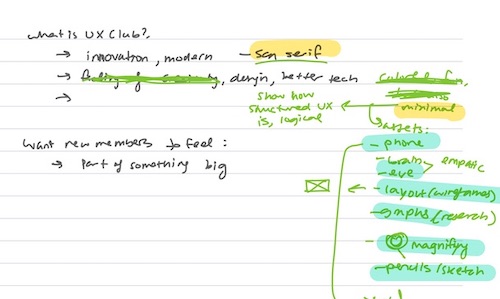 what is UX Club?
→ innovation, modern — san serif
→ design, better tech
→
show how
structured UX
is, logical
minimal
assets:
want new members to feel:
→ part of something big
- phone
- brain
- eye > empatic
- layout (wireframes)
- graphs (research)
- magnify
- pencils/sketch